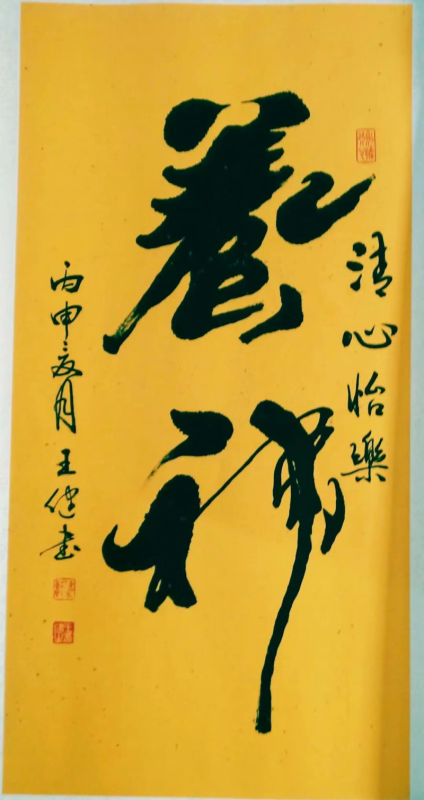 清心怡樂
養神
丙申夏月王健書